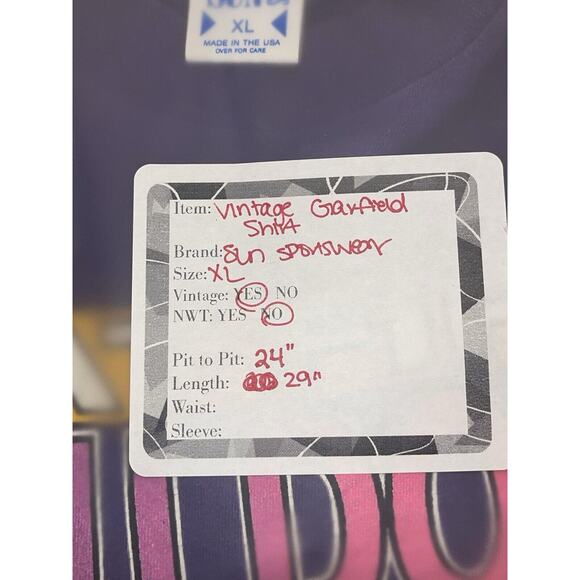 XL
MADE IN THE USA
OVER FOR CARE
Item: Vintage Garfield
Shirt
Brand: Sun Sportswear
Size: XL
Vintage: YES NO
NWT: YES NO
Pit to Pit: 24"
Length: 29"
Waist:
Sleeve: